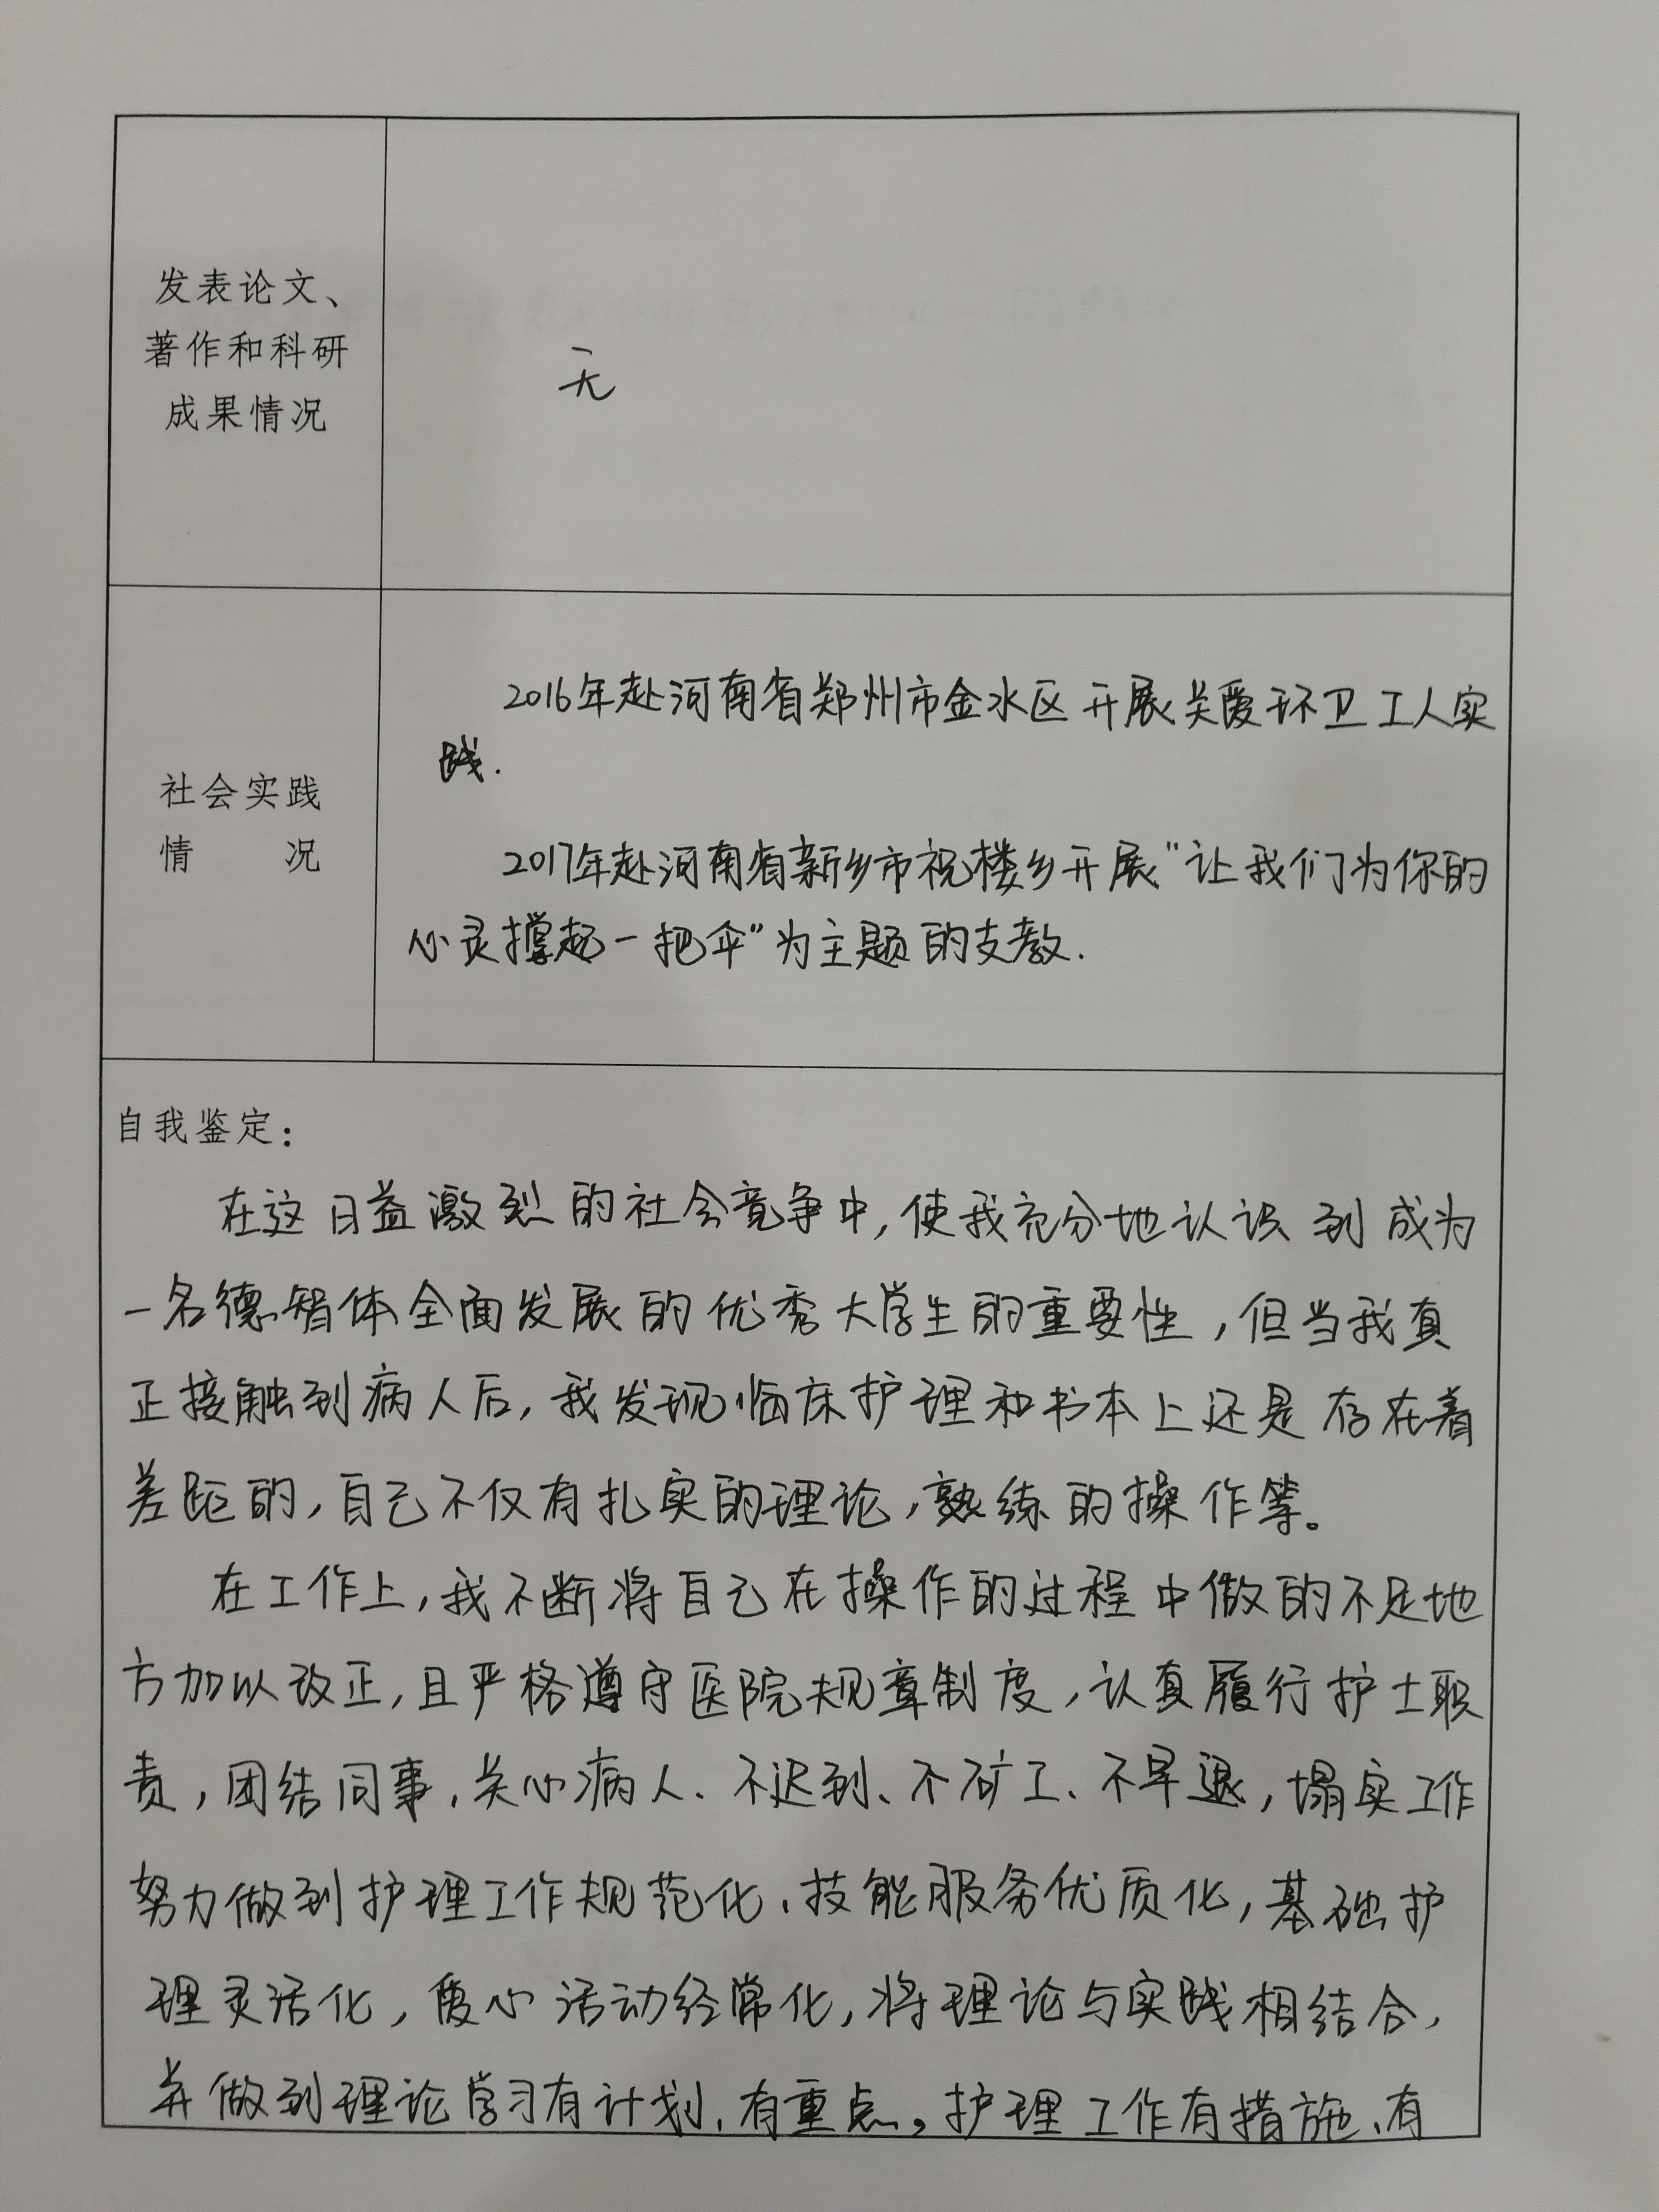 发表论文、
著作和科研
成果情况
无
社会实践
情 况
2016年赴河南省郑州市金水区开展关爱环卫工人实
践.
2017年赴河南省新乡市祝楼乡开展"让我们为你的
心灵撑起一把伞"为主题的支教.
自我鉴定：
在这日益激烈的社会竞争中,使我充分地认识到成为
一名德智体全面发展的优秀大学生的重要性,但当我真
正接触到病人后,我发现临床护理和书本上还是存在着
差距的,自己不仅有扎实的理论,熟练的操作等。
在工作上,我不断将自己在操作的过程中做的不足地
方加以改正,且严格遵守医院规章制度,认真履行护士职
责,团结同事,关心病人、不迟到、不矿工、不早退,塌实工作
努力做到护理工作规范化、技能服务优质化,基础护
理灵活化,爱心活动经常化,将理论与实践相结合,
并做到理论学习有计划,有重点,护理工作有措施、有